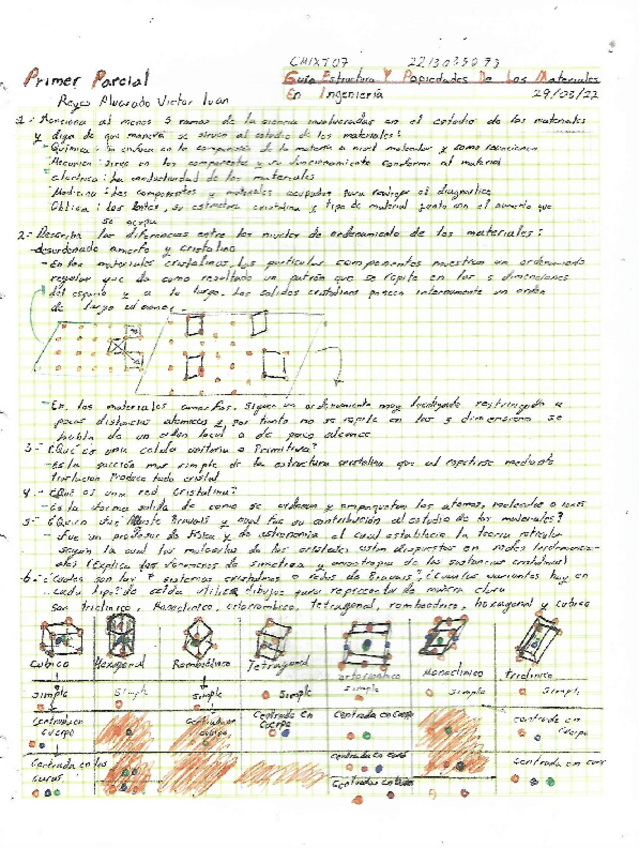 CMIXT07 2213025073
Primer Parcial Guia Estructura Y Propiedades De Los Materiales
Reyes Alvarado Victor Ivan En Ingeniería 29/03/22
1.- Menciona al menos 5 ramas de la ciencia involucradas en el estudio de los materiales
y diga de que manera se sirven al estudio de los materiales:
-Química: Se enfoca en la composición de la materia a nivel molecular y como reaccionan
los componentes y su funcionamiento conforme al material
electrica: la conductividad de los materiales
Medicina: Los componentes y materiales ocupados para realizar el diagnostico
los lentes, su estructura cristalina y tipo de material junto con el aumento que
se ocupa
2.- Describa las diferencias entre los niveles de ordenamiento de los materiales:
-desordenado amorfo y cristalino
-En los materiales cristalinos, las particulas componentes muestran un ordenamiento
regular que da como resultado un patrón que se repite en las 3 dimensiones
del espacio y a lo largo. Los solidos cristalinos poseen internamente un orden
de largo
-En los materiales amorfos, siguen un ordenamiento muy restringido a
pocas distancias atomicas y por tanto no se repite en las 3 dimensiones se
habla de un orden local o de poco alcance
3.- ¿Qué es una celda unitaria o Primitiva?
-Es la porción mas simple de la estructura cristalina que al repetirse mediante
traslación Produce todo cristal
4.- ¿Qué es una red Cristalina?
-Es la forma solida de como se ordenan y empaquetan los atomos, moleculas o iones
5.- ¿Quien fue Bravais y cual fue su contribución al estudio de los materiales?
-fue un profesor de Física y de astronomia el cual establecio la teoria reticular
según la cual las moleculas de los cristales estan dispuestas en redes
(Explica los fenomenos de simetria y anisotropia de las sustancias cristalinas)
6.- ¿Cuales son los 7 sistemas cristalinos o redes de Bravais, ¿Cuantas variantes hay en
cada tipo? de celda utilice dibujos para representar de manera clara
Son triclinico, Monoclinico, ortorrombico, tetragonal, romboedrico, hexagonal y cubico
Cubico Hexagonal Romboedrico Tetragonal ortorrombico Monoclinico triclinico
simple Simple simple Simple simple Simple Simple
Centrada en cuerpo Centrada en cuerpo Centrada en cuerpo Centrada en cuerpo centrada en cuerpo
Centrada en las caras centrada en caras Centrada en caras